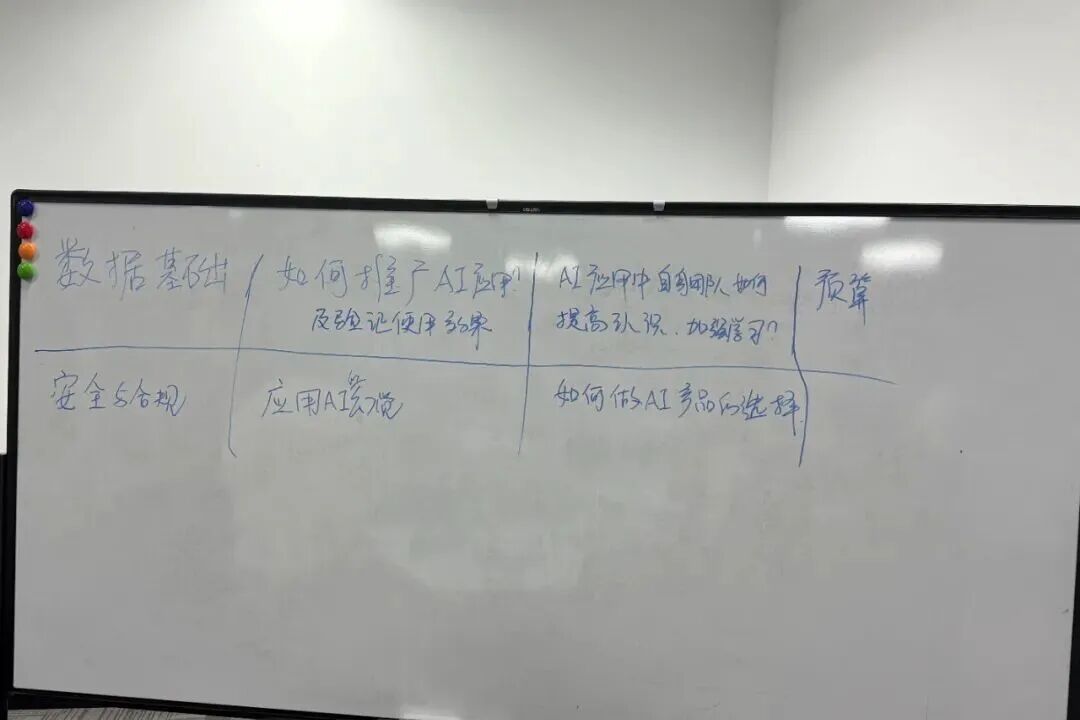 数据基础
如何推广AI应用?
及验证使用效果
AI应用中自身团队如何
提高认识、加强学习?
预算
安全与合规
应用AI
如何做AI产品的选择